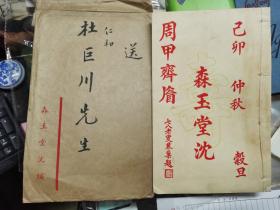 送
仁和
杜巨川先生
森玉堂沈緘
己卯 仲秋 穀旦
森玉堂沈
周甲齊眉